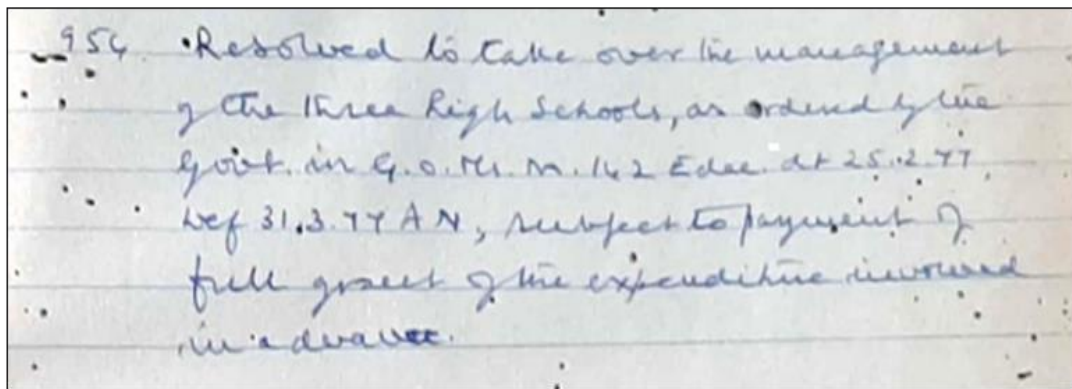 954. Resolved to take over the management
of the three High Schools, as ordered by the
Govt. in G.O. Ms. No. 142 Edn. dt 25.2.77
wef 31.3.77 AN, subject to payment of
full grant of the expenditure involved
in advance.